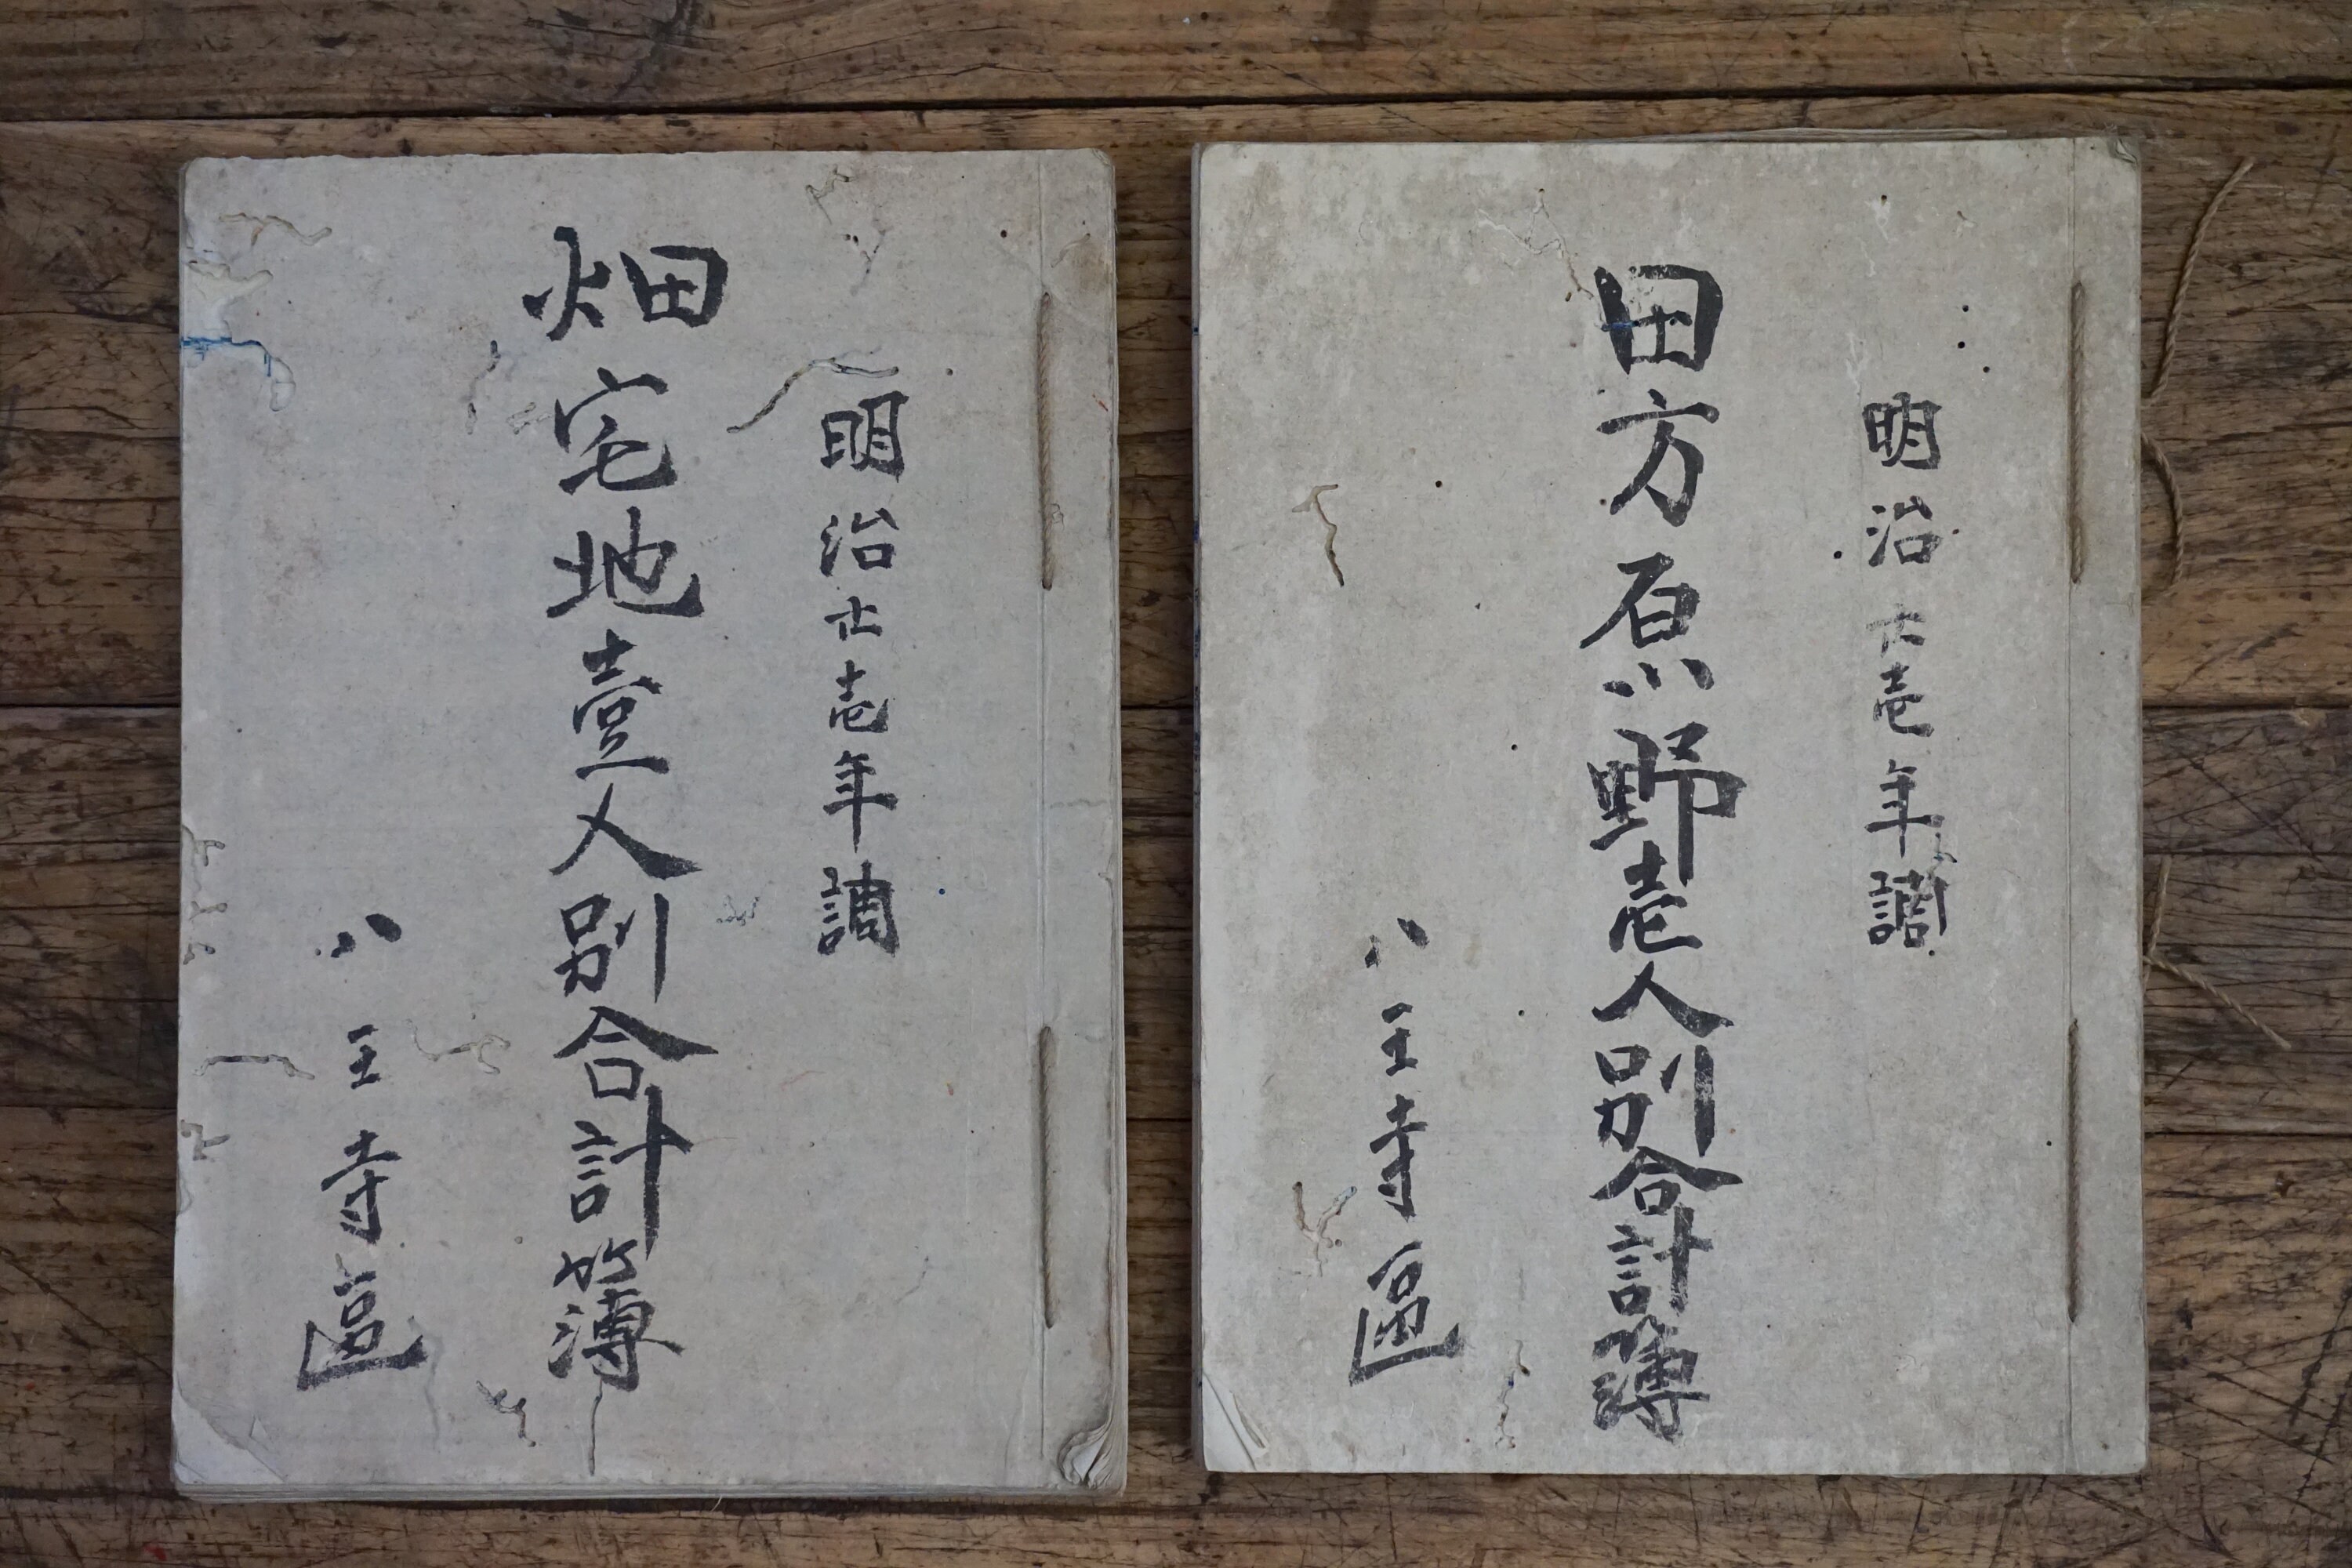 明治廿壱年調
田方原野壱人別合計簿
八王寺區
明治廿壱年調
畑宅地壹人別合計簿
八王寺區